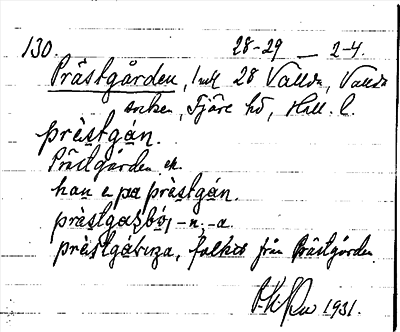 130. 28-29 — 2-4.
Prästgården, 1 mtl 28 Vallda, Vallda
socken, Fjäre hd, Hall. l.
prèstgán.
Prästgården. ek.
han e pa prèstgán.
prèstgasbój -n. -a.
prèstgárna, folket från Prästgården
1931.